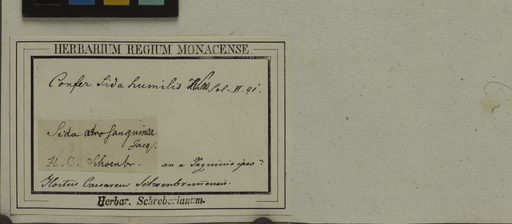 HERBARIUM REGIUM MONACENSE.
Confer Sida humilis Willd. sol. II. 91.
Sida atrosanguinea
Jacq.
H. C. Schoenbr. an a Jaquinio ipso?
Hortus Caesareus Schoenbrunensis
Herbar. Schreberianum.